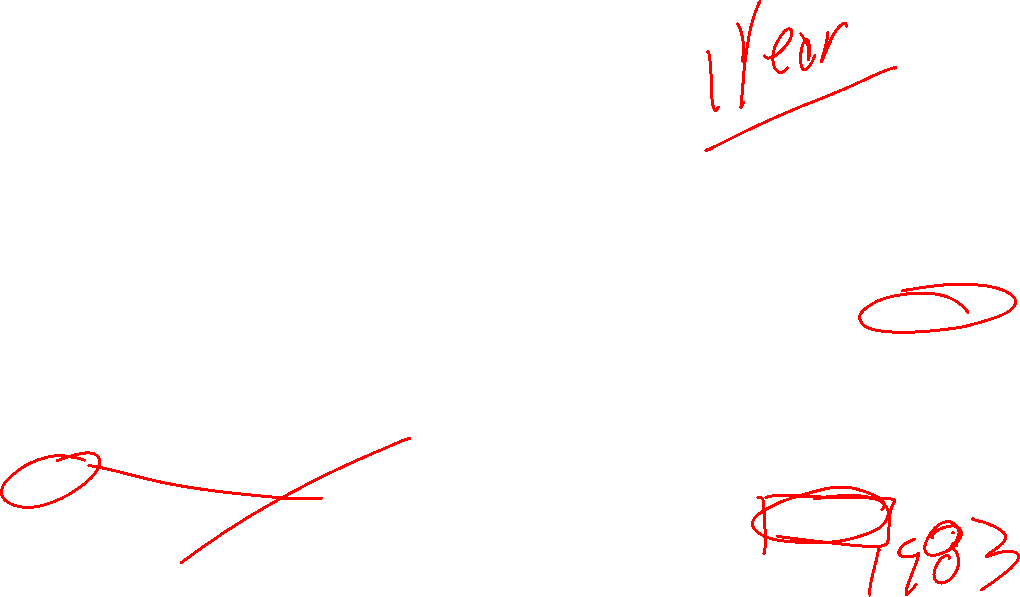 1 Year
1983